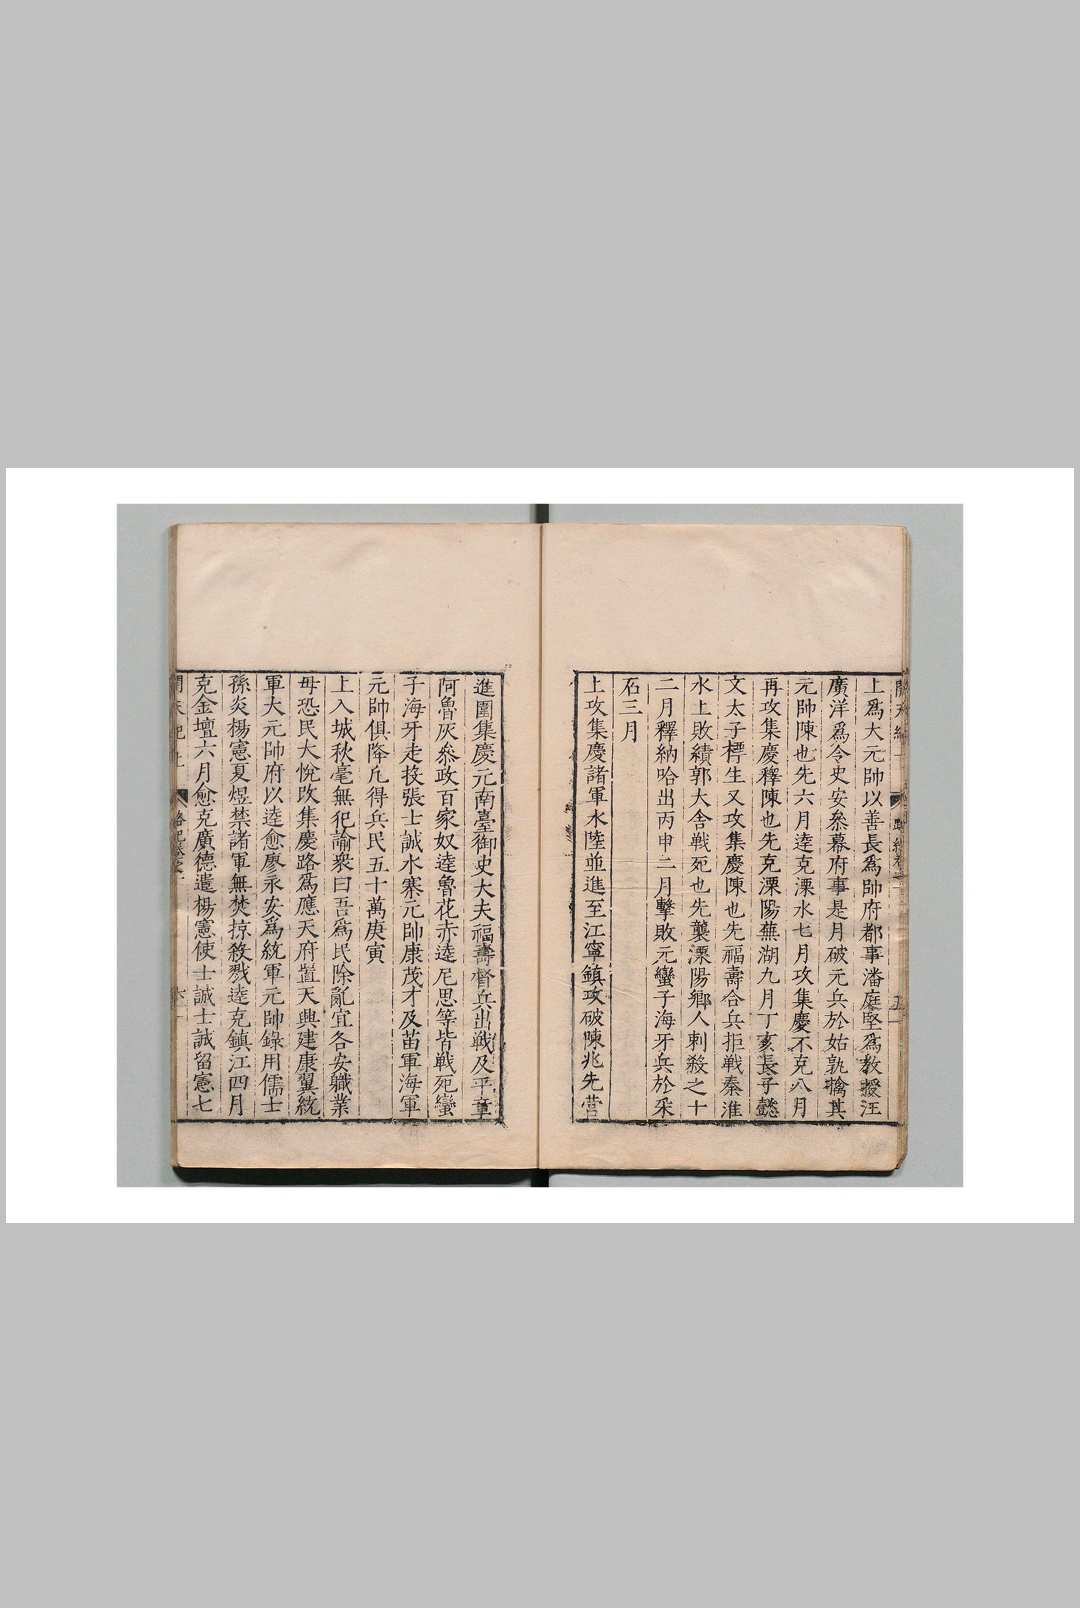 上爲大元帥以善長爲帥府都事潘庭堅爲教授汪
廣洋爲令史安叅幕府事是月破元兵於始孰擒其
元帥陳也先六月逵克溧水七月攻集慶不克八月
再攻集慶釋陳也先克溧陽蕪湖九月丁亥長子懿
文太子標生又攻集慶陳也先福壽合兵拒戰秦淮
水上敗績郭大舍戰死也先襲溧陽鄉人刺殺之十
二月釋納哈出丙申二月擊敗元蠻子海牙兵於采
石三月
上攻集慶諸軍水陸並進至江寧鎮攻破陳兆先營
進圍集慶元南臺御史大夫福壽督兵出戰及平章
阿魯灰叅政百家奴逵魯花赤逵尼思等皆戰死蠻
子海牙走投張士誠水寨元帥康茂才及苗軍海軍
元帥俱降凢得兵民五十萬庚寅
上入城秋毫無犯諭衆曰吾爲民除亂宜各安職業
毋恐民大悅改集慶路爲應天府置天興建康翼統
軍大元帥府以逵愈廖永安爲統軍元帥錄用儒士
孫炎楊憲夏煜禁諸軍無焚掠殺戮逵克鎮江四月
克金壇六月愈克廣德遣楊憲使士誠士誠留憲七